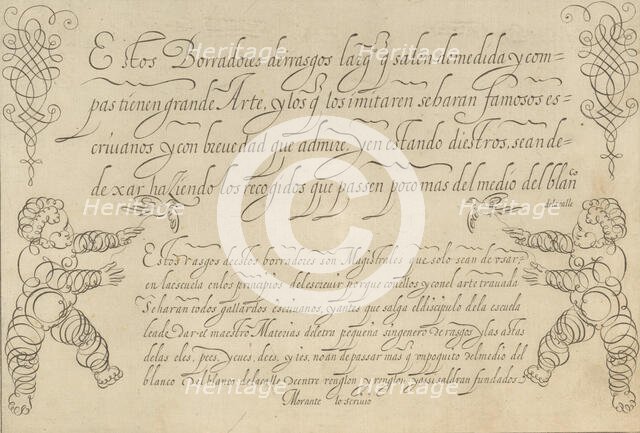 Estos Borradores de rrasgos largos q̃ salen demedida y com=
pas tienen grande Arte, y los q̃ los imitaren se haran famosos es=
criuanos y con breuedad que admire, y en estando diestros, sean de=
de xar haziendo los recogidos que passen poco mas del medio del blanco
dela calle
Estos rasgos destos borradores son Magistrales que solo sean de vsar=
en laescuela enlos principios delescreuir porque conellos y conel arte trauada
Se haran todos gallardos escriuanos, yantes que salga eldiscipulo dela escuela
leade dar el maestro Materias deletra pequeña singenero derasgos y las astas
delas eles, pees, ycues, dees, y tes, noan depassar mas q̃ vnpoquito delmedio del
blanco del blanco delacalle dentre renglon y renglon, yassi saldran fundados.
Morante lo scriuio
Heritage Images
Heritage Images
Heritage Images
Heritage Images